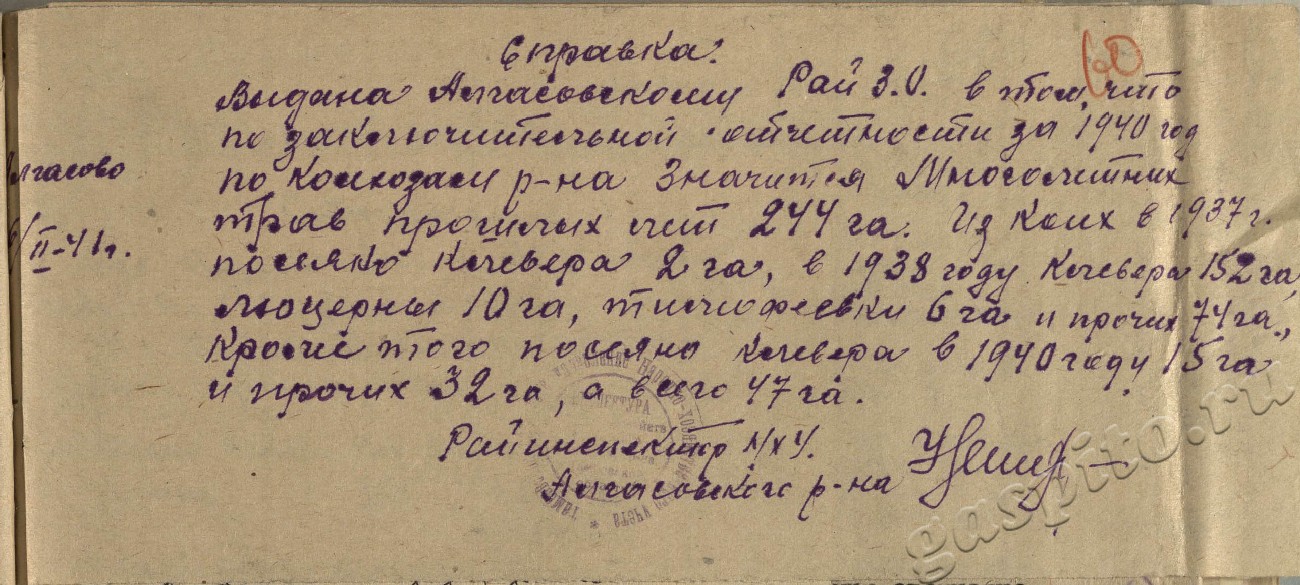 Справка.
60
Выдана Алгасовскому Рай З.О. в том, что
по заключительной отчетности за 1940 год
лгасово
по колхозам р-на значится многолетних
трав прошлых лет 244 га. Из коих в 1937 г.
/II-41г.
посеяно клевера 2 га, в 1938 году клевера 152 га,
люцерны 10 га, тимофеевки 6 га и прочих 74 га.,
кроме того посеяно клевера в 1940 году 15 га
и прочих 32 га, а всего 47 га.
Райинспектор НХУ.
Алгасовского р-на
Народно-хозяй
учета
gaspito.ru